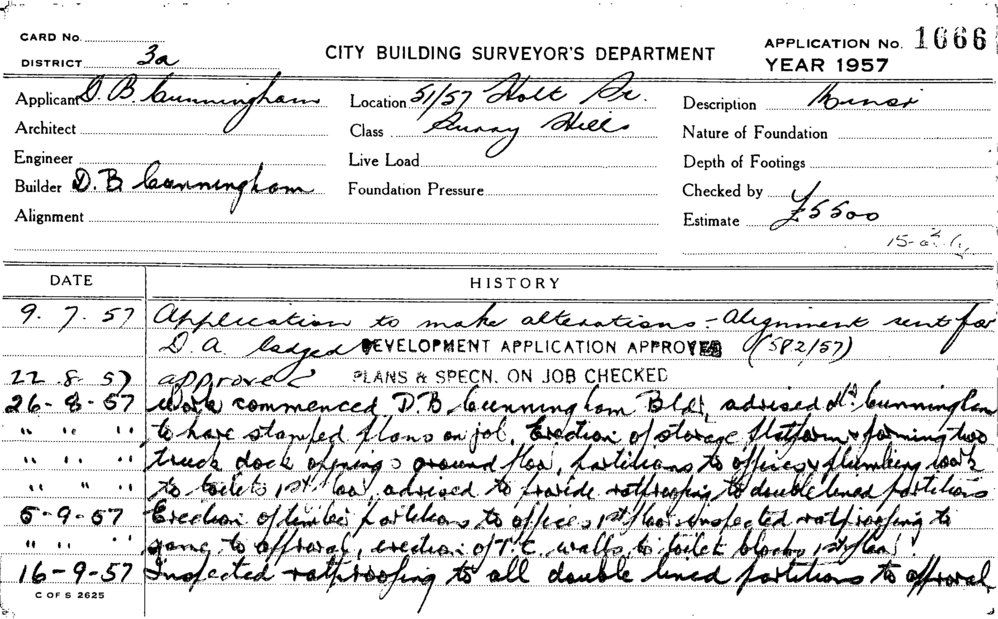 CARD No.
DISTRICT 3a
CITY BUILDING SURVEYOR'S DEPARTMENT
APPLICATION No. 1666
YEAR 1957
Applicant D. B. Cunningham
Location 51/57 Holt St.
Description Minor
Architect
Class Surry Hills
Nature of Foundation
Engineer
Live Load
Depth of Footings
Builder D. B Cunningham
Foundation Pressure
Checked by
Alignment
Estimate £5500
DATE HISTORY
9. 7. 57 Application to make alterations - Alignment sent for
D. A. lodged DEVELOPMENT APPLICATION APPROVED (582/57)
22. 8. 57 approved PLANS & SPECN. ON JOB CHECKED
26-8-57 Work commenced D. B. Cunningham Bldr, advised Mr Cunningham
" " " to have stamped plans on job, Erection of storage platform & forming two
" " " truck dock openings ground floor, partitions to offices & plumbing work
" " " to toilets 1st floor, advised to provide ratproofing to double lined partitions
5-9-57 Erection of timber partitions to offices 1st floor inspected ratproofing to
" " " same to approval, erection of T.C. walls to toilet blocks 1st floor.
16-9-57 Inspected ratproofing to all double lined partitions to approval
C OF S 2625